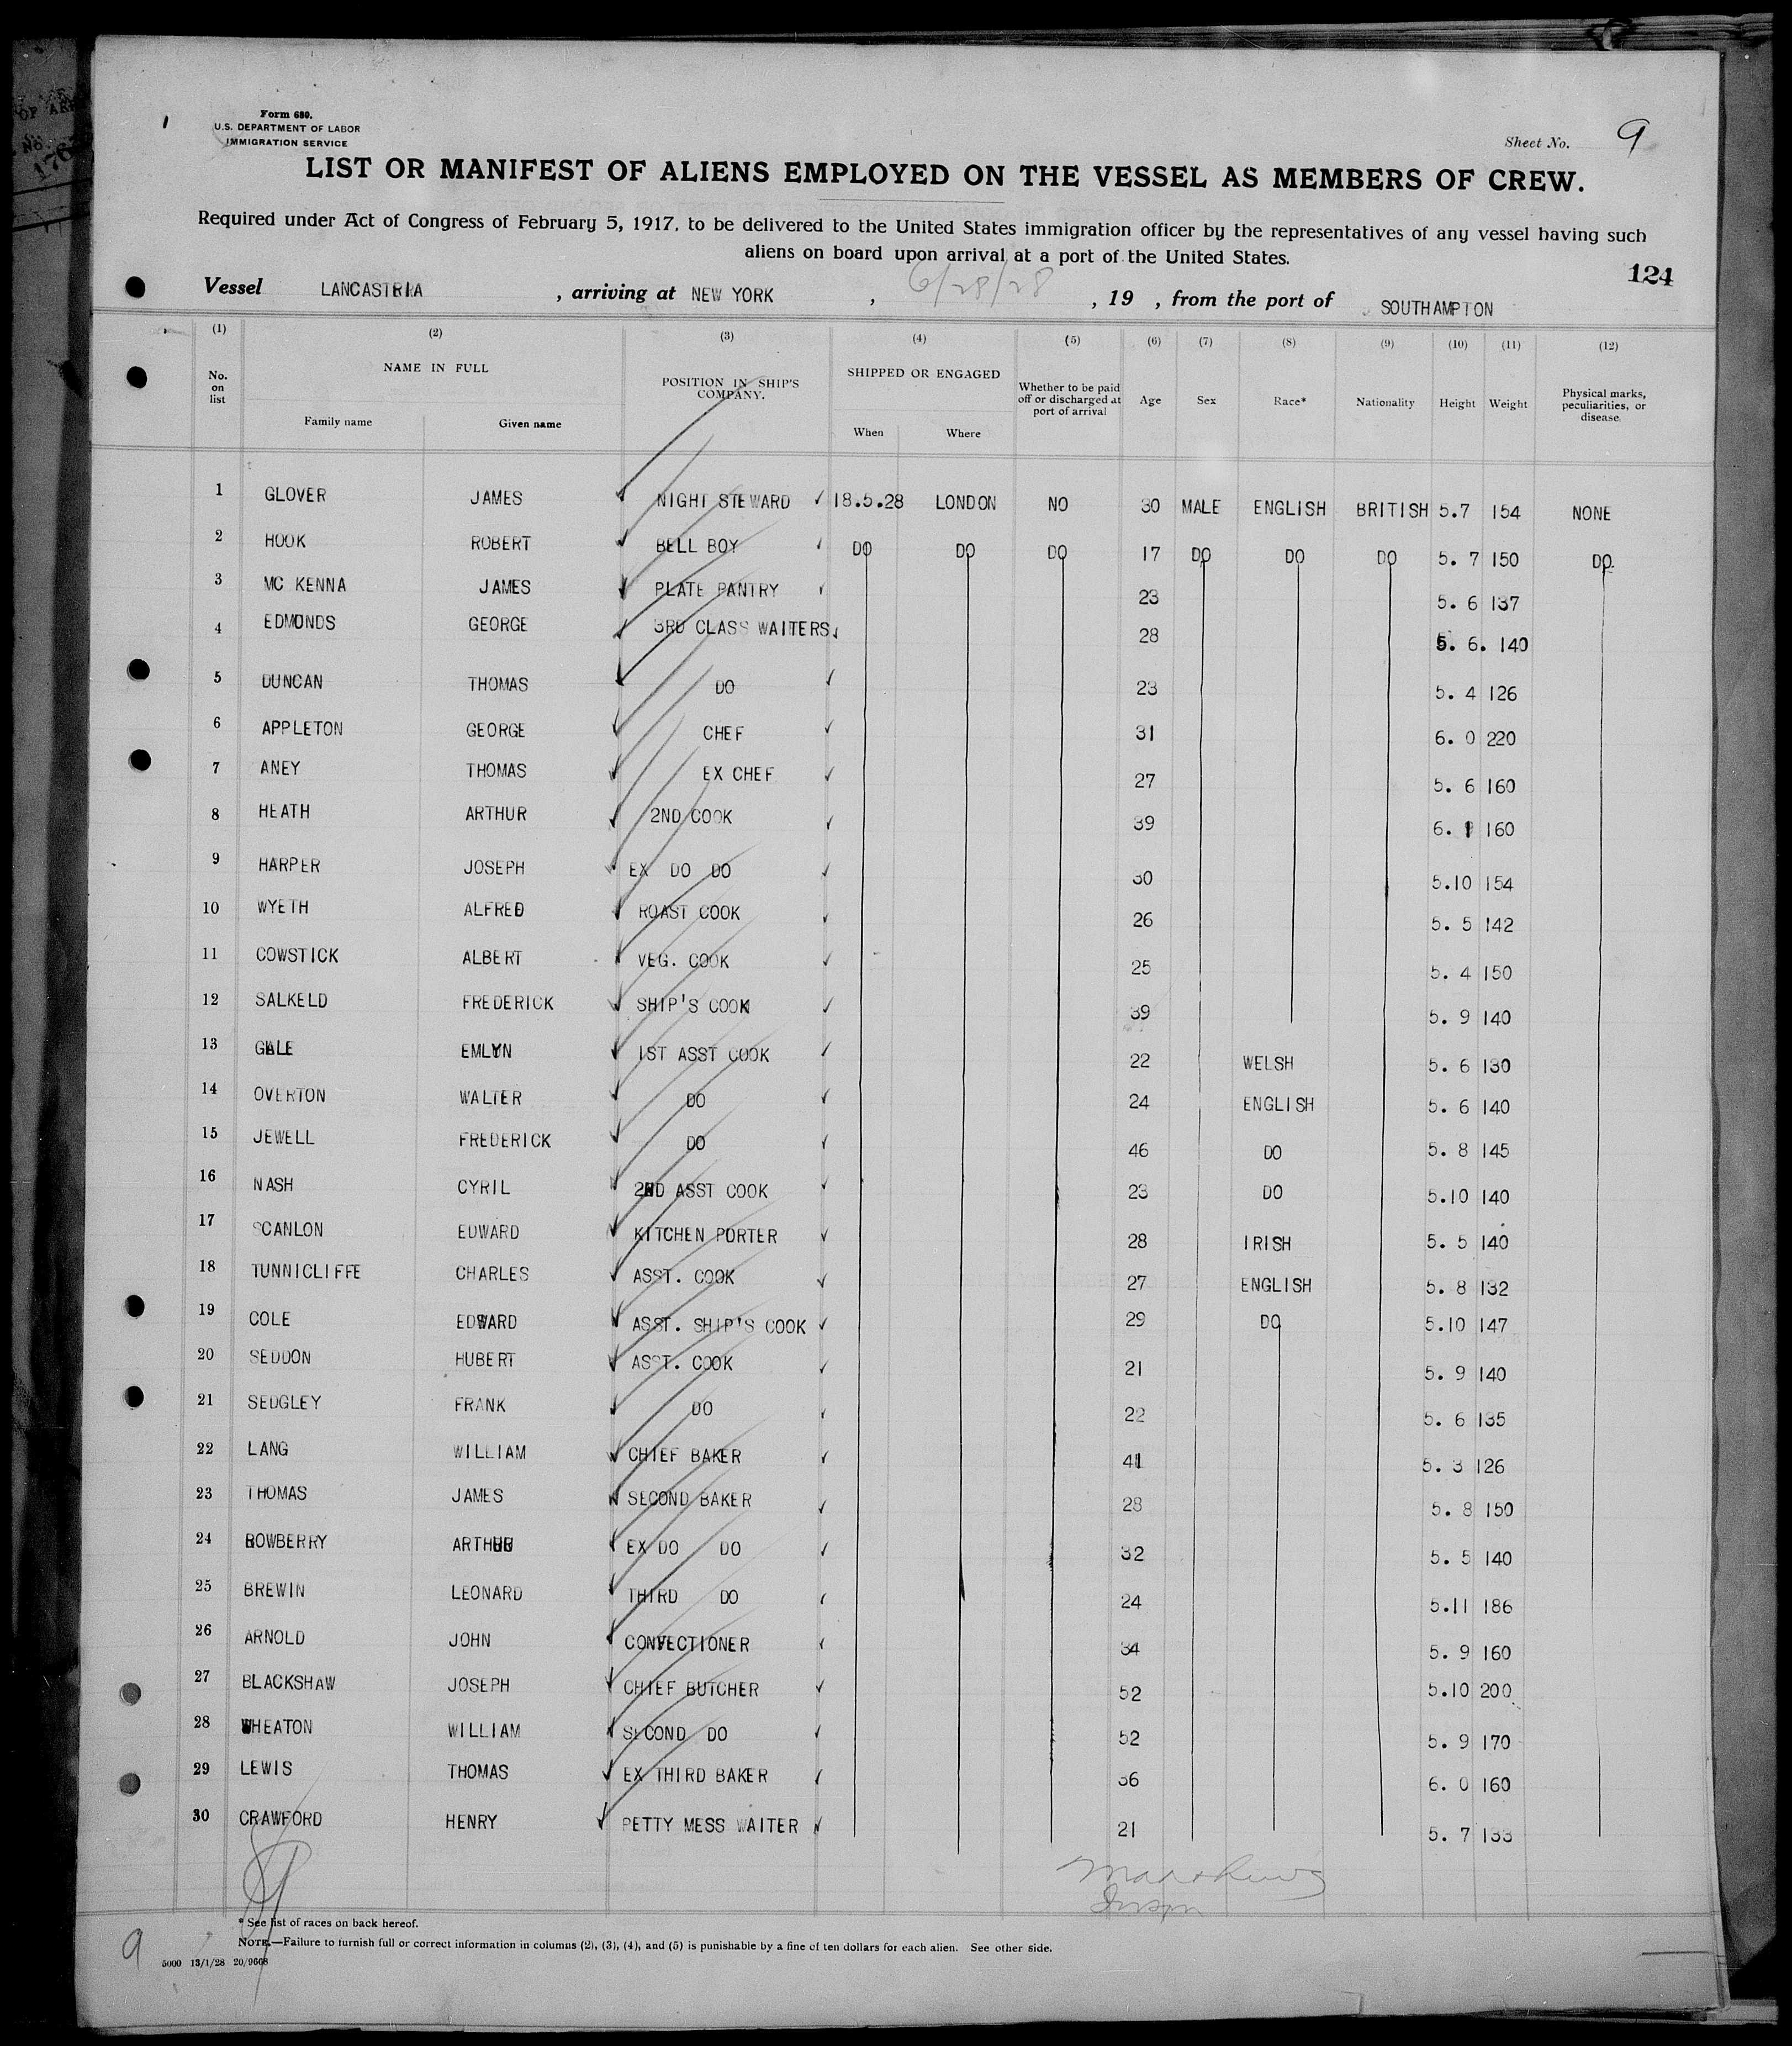 Form 680.
U.S. DEPARTMENT OF LABOR
IMMIGRATION SERVICE
Sheet No. 9
LIST OR MANIFEST OF ALIENS EMPLOYED ON THE VESSEL AS MEMBERS OF CREW.
Required under Act of Congress of February 5, 1917, to be delivered to the United States immigration officer by the representatives of any vessel having such
aliens on board upon arrival at a port of the United States.
124
Vessel LANCASTRIA , arriving at NEW YORK , 6/28/28 , 19 , from the port of SOUTHAMPTON
(1) (2) (3) (4) (5) (6) (7) (8) (9) (10) (11) (12)
No. on list NAME IN FULL POSITION IN SHIP'S COMPANY. SHIPPED OR ENGAGED Whether to be paid off or discharged at port of arrival Age Sex Race* Nationality Height Weight Physical marks, peculiarities, or disease
Family name Given name When Where
1 GLOVER JAMES NIGHT STEWARD 18.5.28 LONDON NO 30 MALE ENGLISH BRITISH 5.7 154 NONE
2 HOOK ROBERT BELL BOY DO DO DO 17 DO DO DO 5. 7 150 DO.
3 MC KENNA JAMES PLATE PANTRY 23 5. 6 137
4 EDMONDS GEORGE 3RD CLASS WAITERS 28 5. 6. 140
5 DUNCAN THOMAS DO 23 5. 4 126
6 APPLETON GEORGE CHEF 31 6. 0 220
7 ANEY THOMAS EX CHEF 27 5. 6 160
8 HEATH ARTHUR 2ND COOK 39 6. 1 160
9 HARPER JOSEPH EX DO DO 30 5.10 154
10 WYETH ALFRED ROAST COOK 26 5. 5 142
11 COWSTICK ALBERT VEG. COOK 25 5. 4 150
12 SALKELD FREDERICK SHIP'S COOK 39 5. 9 140
13 GALE EMLYN 1ST ASST COOK 22 WELSH 5. 6 130
14 OVERTON WALTER DO 24 ENGLISH 5. 6 140
15 JEWELL FREDERICK DO 46 DO 5. 8 145
16 NASH CYRIL 2ND ASST COOK 23 DO 5.10 140
17 SCANLON EDWARD KITCHEN PORTER 28 IRISH 5. 5 140
18 TUNNICLIFFE CHARLES ASST. COOK 27 ENGLISH 5. 8 132
19 COLE EDWARD ASST. SHIP'S COOK 29 DO 5.10 147
20 SEDDON HUBERT ASST. COOK 21 5. 9 140
21 SEDGLEY FRANK DO 22 5. 6 135
22 LANG WILLIAM CHIEF BAKER 41 5. 3 126
23 THOMAS JAMES SECOND BAKER 28 5. 8 150
24 ROWBERRY ARTHUR EX DO DO 32 5. 5 140
25 BREWIN LEONARD THIRD DO 24 5.11 186
26 ARNOLD JOHN CONFECTIONER 34 5. 9 160
27 BLACKSHAW JOSEPH CHIEF BUTCHER 52 5.10 200
28 WHEATON WILLIAM SECOND DO 52 5. 9 170
29 LEWIS THOMAS EX THIRD BAKER 36 6. 0 160
30 CRAWFORD HENRY PETTY MESS WAITER 21 5. 7 133
Matthews
Insp
* See list of races on back hereof.
NOTE.—Failure to furnish full or correct information in columns (2), (3), (4), and (5) is punishable by a fine of ten dollars for each alien. See other side.
9
5000 13/1/28 20/9668